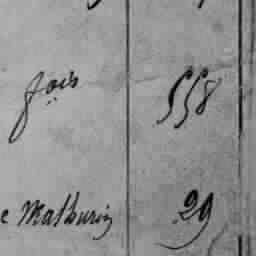 fois 558
e Mathurin 29